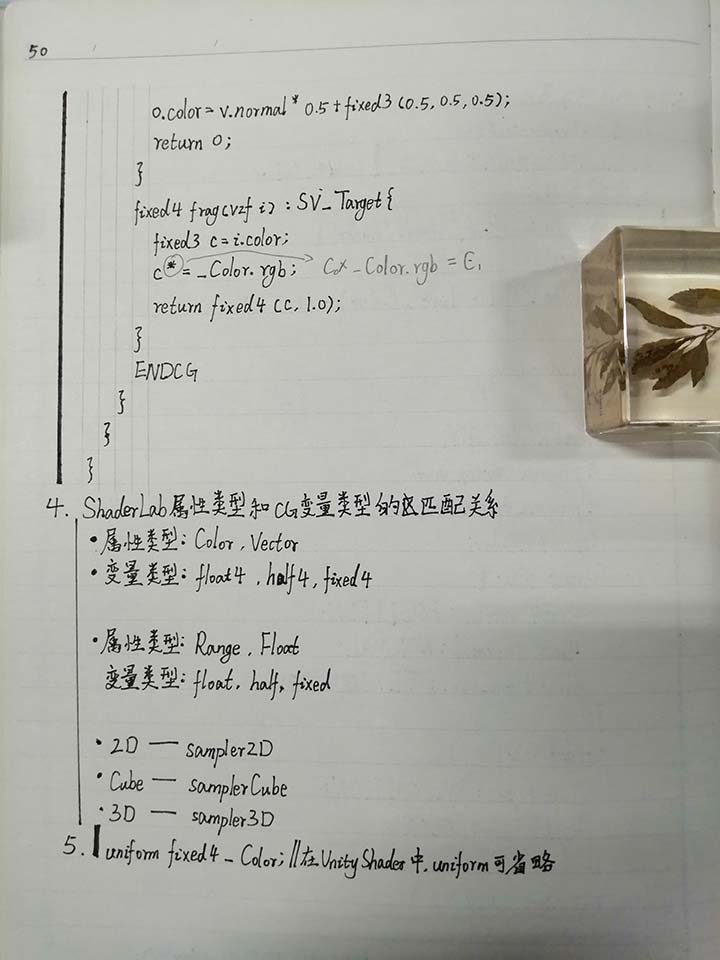 50
o.color = v.normal * 0.5 + fixed3 (0.5, 0.5, 0.5);
return o;
}
fixed4 frag(v2f i) : SV_Target {
fixed3 c = i.color;
c *= _Color.rgb; C0 × _Color.rgb = C1
return fixed4 (c, 1.0);
}
ENDCG
}
}
}
4. ShaderLab属性类型和CG变量类型的匹配关系
• 属性类型: Color, Vector
• 变量类型: float4, half4, fixed4
• 属性类型: Range, Float
变量类型: float, half, fixed
• 2D — sampler2D
• Cube — samplerCube
• 3D — sampler3D
5. uniform fixed4 _Color; //在Unity Shader中, uniform可省略